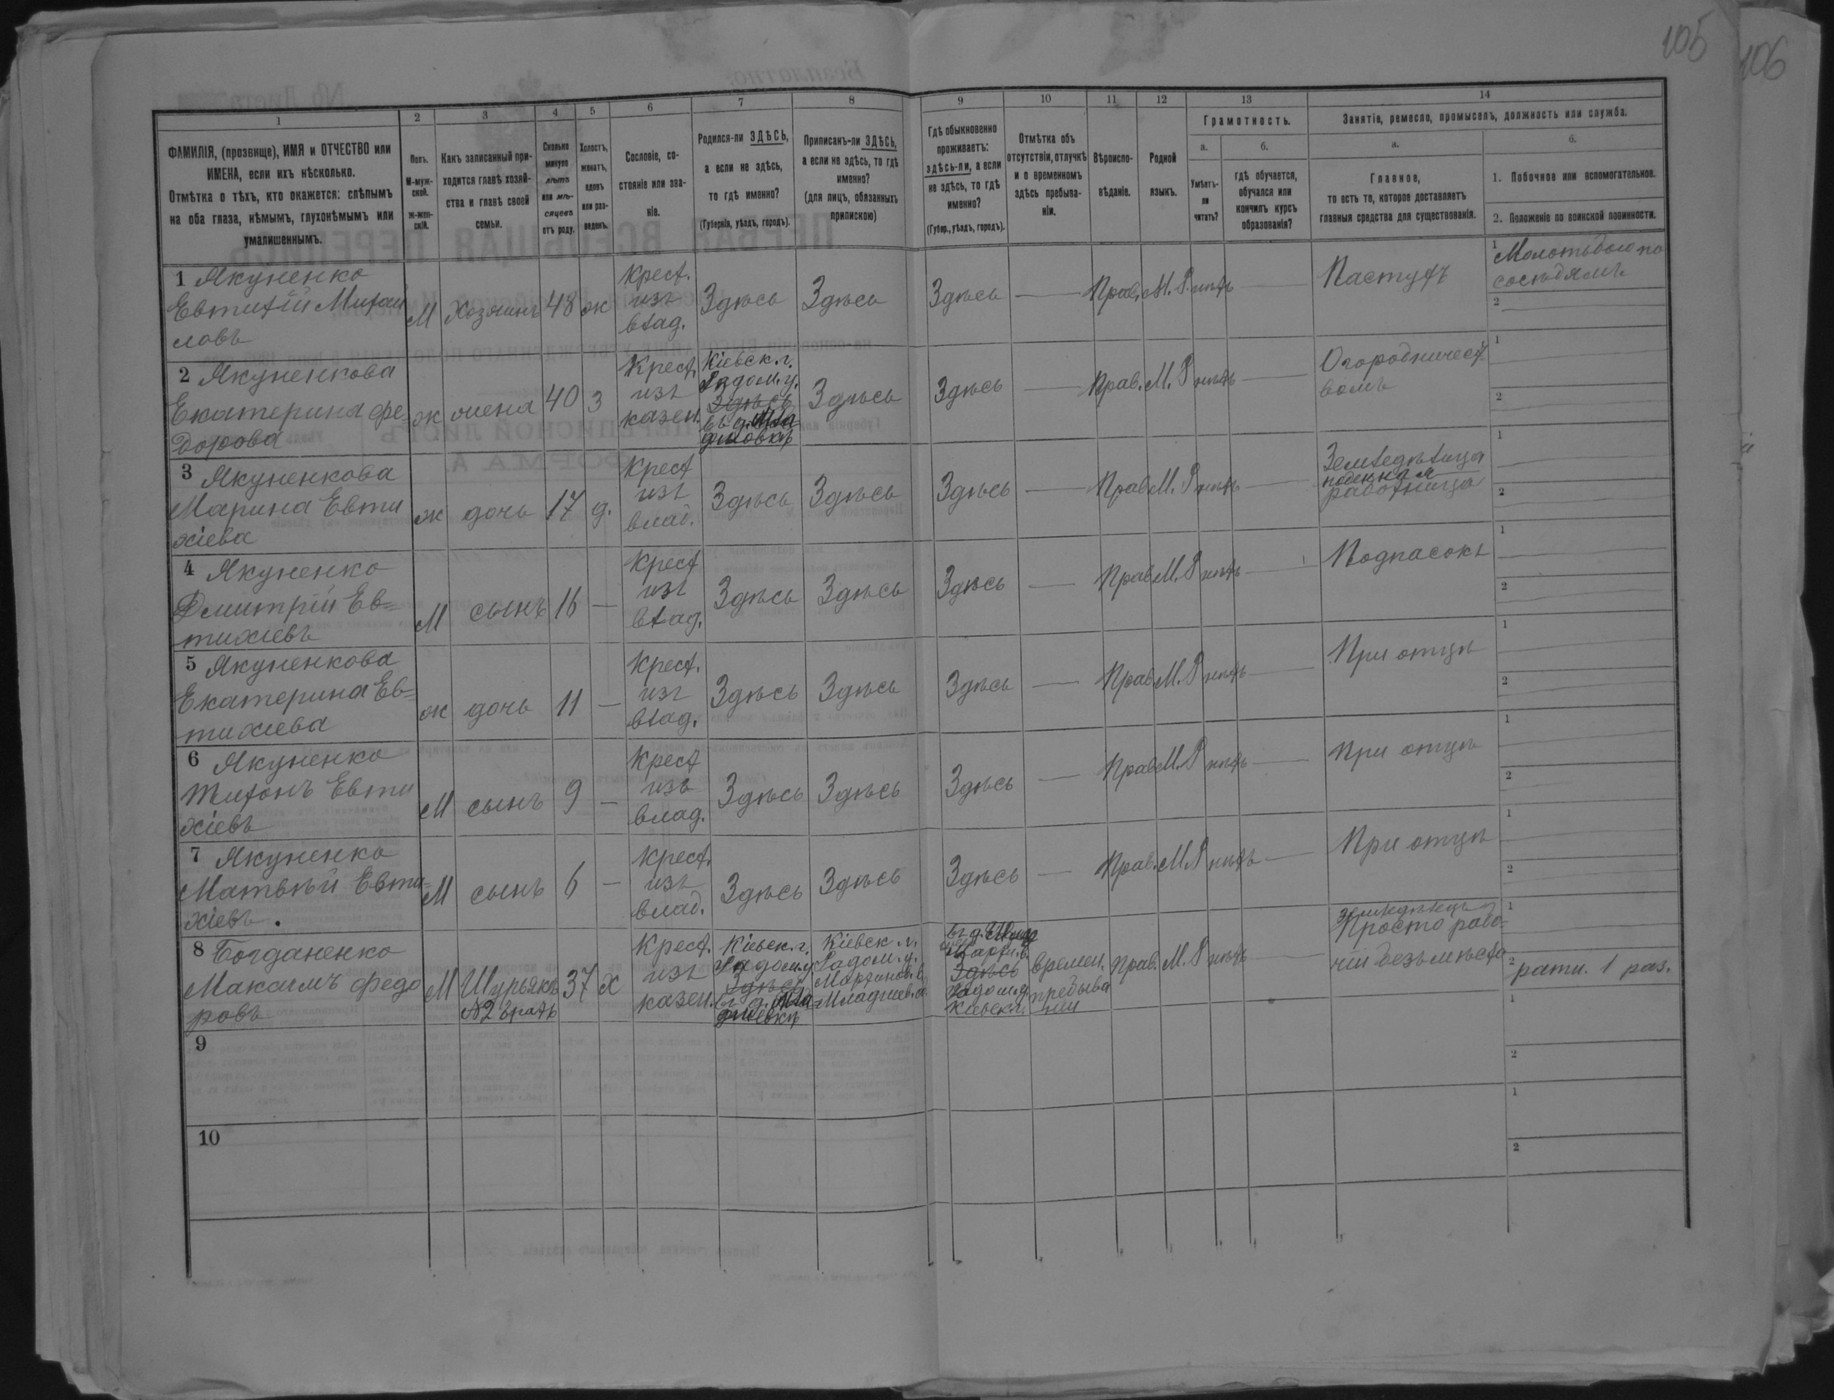 105
106
1
2
3
4
5
6
7
8
9
10
11
12
13
14
ФАМИЛІЯ, (прозвище), ИМЯ и ОТЧЕСТВО или
ИМЕНА, если ихъ нѣсколько.
Отмѣтка о тѣхъ, кто окажется: слѣпымъ
на оба глаза, нѣмымъ, глухонѣмымъ или
умалишеннымъ.
Полъ.
М-муж-
ской.
ж-жен-
скій.
Какъ записанный при-
ходится главѣ хозяй-
ства и главѣ своей
семьи.
Сколько
минуло
лѣтъ
или мѣ-
сяцевъ
отъ роду.
Холостъ,
женатъ,
вдовъ
или раз-
веденъ.
Сословіе, со-
стояніе или зва-
ніе.
Родился-ли ЗДѢСЬ,
а если не здѣсь,
то гдѣ именно?
(Губернія, уѣздъ, городъ).
Приписанъ-ли ЗДѢСЬ,
а если не здѣсь, то гдѣ
именно?
(для лицъ, обязанныхъ
припискою)
Гдѣ обыкновенно
проживаетъ:
здѣсь-ли, а если
не здѣсь, то гдѣ
именно?
(Губер., уѣздъ, городъ).
Отмѣтка объ
отсутствіи, отлучкѣ
и о временномъ
здѣсь пребыва-
ніи.
Вѣроиспо-
вѣданіе.
Родной
языкъ.
Грамотность.
а.
Умѣетъ-
ли
читать?
б.
гдѣ обучается,
обучался или
кончилъ курсъ
образованія?
Занятіе, ремесло, промыселъ, должность или служба.
а.
Главное,
то есть то, которое доставляетъ
главныя средства для существованія.
б.
1. Побочное или вспомогательное.
2. Положеніе по воинской повинности.
1 Якуненко
Евтихій Михаи
ловъ
М
Хозяинъ
48
ж
Крест.
изъ
влад.
Здѣсь
Здѣсь
Здѣсь
—
Прав.
М.Р
нѣтъ
—
Пастухъ
1 Молотьбою по
сосѣдямъ
2
2 Якуненкова
Екатерина Фе
дорова
ж
жена
40
З
Крест.
изъ
казен.
Кіевск. г.
Радом. у.
Здѣсь
Здѣсь
Здѣсь
—
Прав.
М.Р
нѣтъ
—
Огородничест
вомъ
1
2
3 Якуненкова
Марина Евти
хіева
ж
дочь
17
д.
Крест
изъ
влад.
Здѣсь
Здѣсь
Здѣсь
—
Прав
М.Р
нѣтъ
—
Земледѣлица
работница
1
2
4 Якуненко
Дмитрій Ев=
тихіевъ
М
сынъ
16
—
Крест
изъ
влад.
Здѣсь
Здѣсь
Здѣсь
—
Прав
М.Р
нѣтъ
—
Подпасокъ
1
2
5 Якуненкова
Екатерина Ев=
тихіева
ж
дочь
11
—
Крест.
изъ
влад.
Здѣсь
Здѣсь
Здѣсь
—
Прав
М.Р
нѣтъ
—
При отцѣ
1
2
6 Якуненко
Тихонъ Евти
хіевъ
М
сынъ
9
—
Крест
изъ
влад.
Здѣсь
Здѣсь
Здѣсь
—
Прав
М.Р
нѣтъ
—
При отцѣ
1
2
7 Якуненко
Матвѣй Евти-
хіевъ.
М
сынъ
6
—
Крест.
изъ
влад.
Здѣсь
Здѣсь
Здѣсь
—
Прав.
М.Р
нѣтъ
—
При отцѣ
1
2
8 Богданенко
Максимъ Федо
ровъ
М
Шурьякъ
№2 братъ
37
х
Крест.
изъ
казен.
Кіевск. г.
Радом. у
Здѣсь
Кіевск. г.
Радом. у.
Здѣсь
Радом. у
Кіевск. г.
времен.
пребыва
ніи
Прав.
М.Р
нѣтъ
—
Просто рабо-
чій безъ мѣста
1
2 ратн. 1 раз.
9
1
2
10
1
2